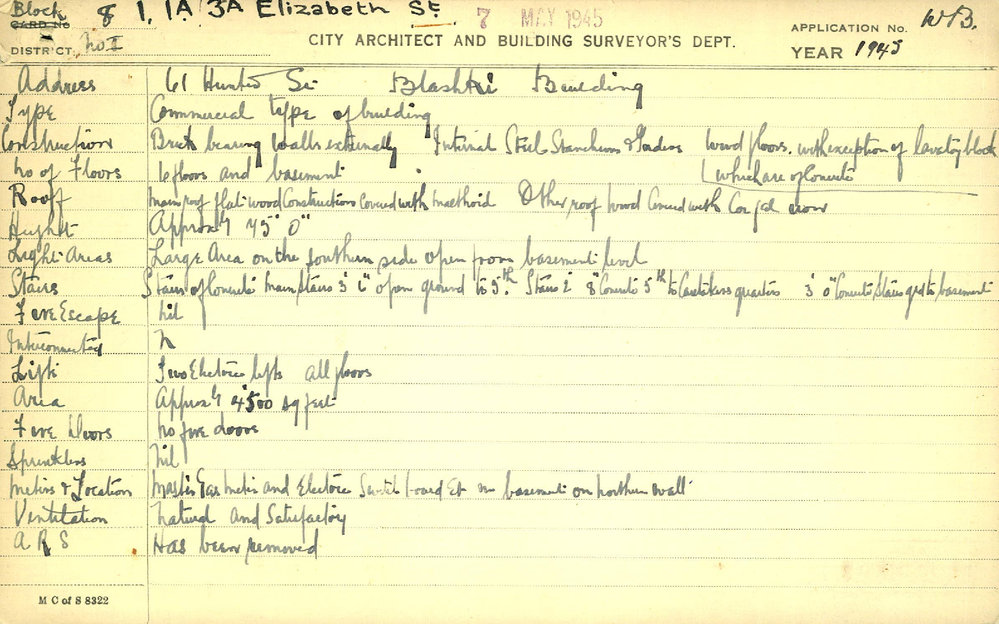 Block 8 1, 1A/3A Elizabeth St. 7 MAY 1945 APPLICATION No. WB.
CARD No
DISTRICT. No. I CITY ARCHITECT AND BUILDING SURVEYOR'S DEPT. YEAR 1945
Address 61 Hunter St Blashki Building
Type Commercial type of building
Construction Brick bearing walls externally Internal Steel Stanchions & Girders Wood floors. with exception of lavatory block
which are of Concrete
No of Floors 6 floors and basement
Roof main roof flat wood Construction Covered with malthoid Other roof wood Covered with Corr gal iron
Height Approx 75' 0"
Light Areas Large Area on the southern side open from basement level
Stairs Stairs of Concrete Main Stairs 3' 6" open ground to 5th. Stairs 2' 8" Concrete 5th to Caretakers quarters 3' 0" Concrete Stairs grd to basement
Fire Escape Nil
Interconnected N
Lifts Two Electric lifts all floors
Area Approx 4500 sq feet
Fire Doors No fire doors
Sprinklers Nil
Meters & Location Gas meters and Electric Switch board in basement on northern wall
Ventilation Natural and Satisfactory
A R S Has been removed
M C of S 8322